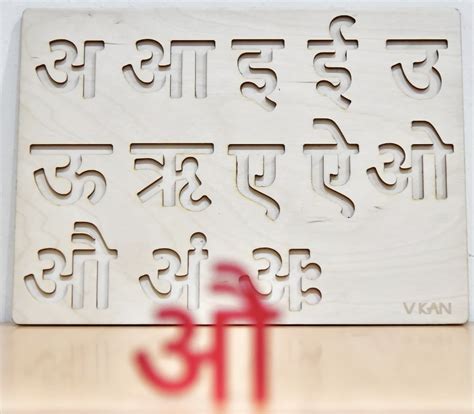 अ आ इ ई उ
ऊ ऋ ए ऐ ओ
औ अं अः
V.KAN
औ